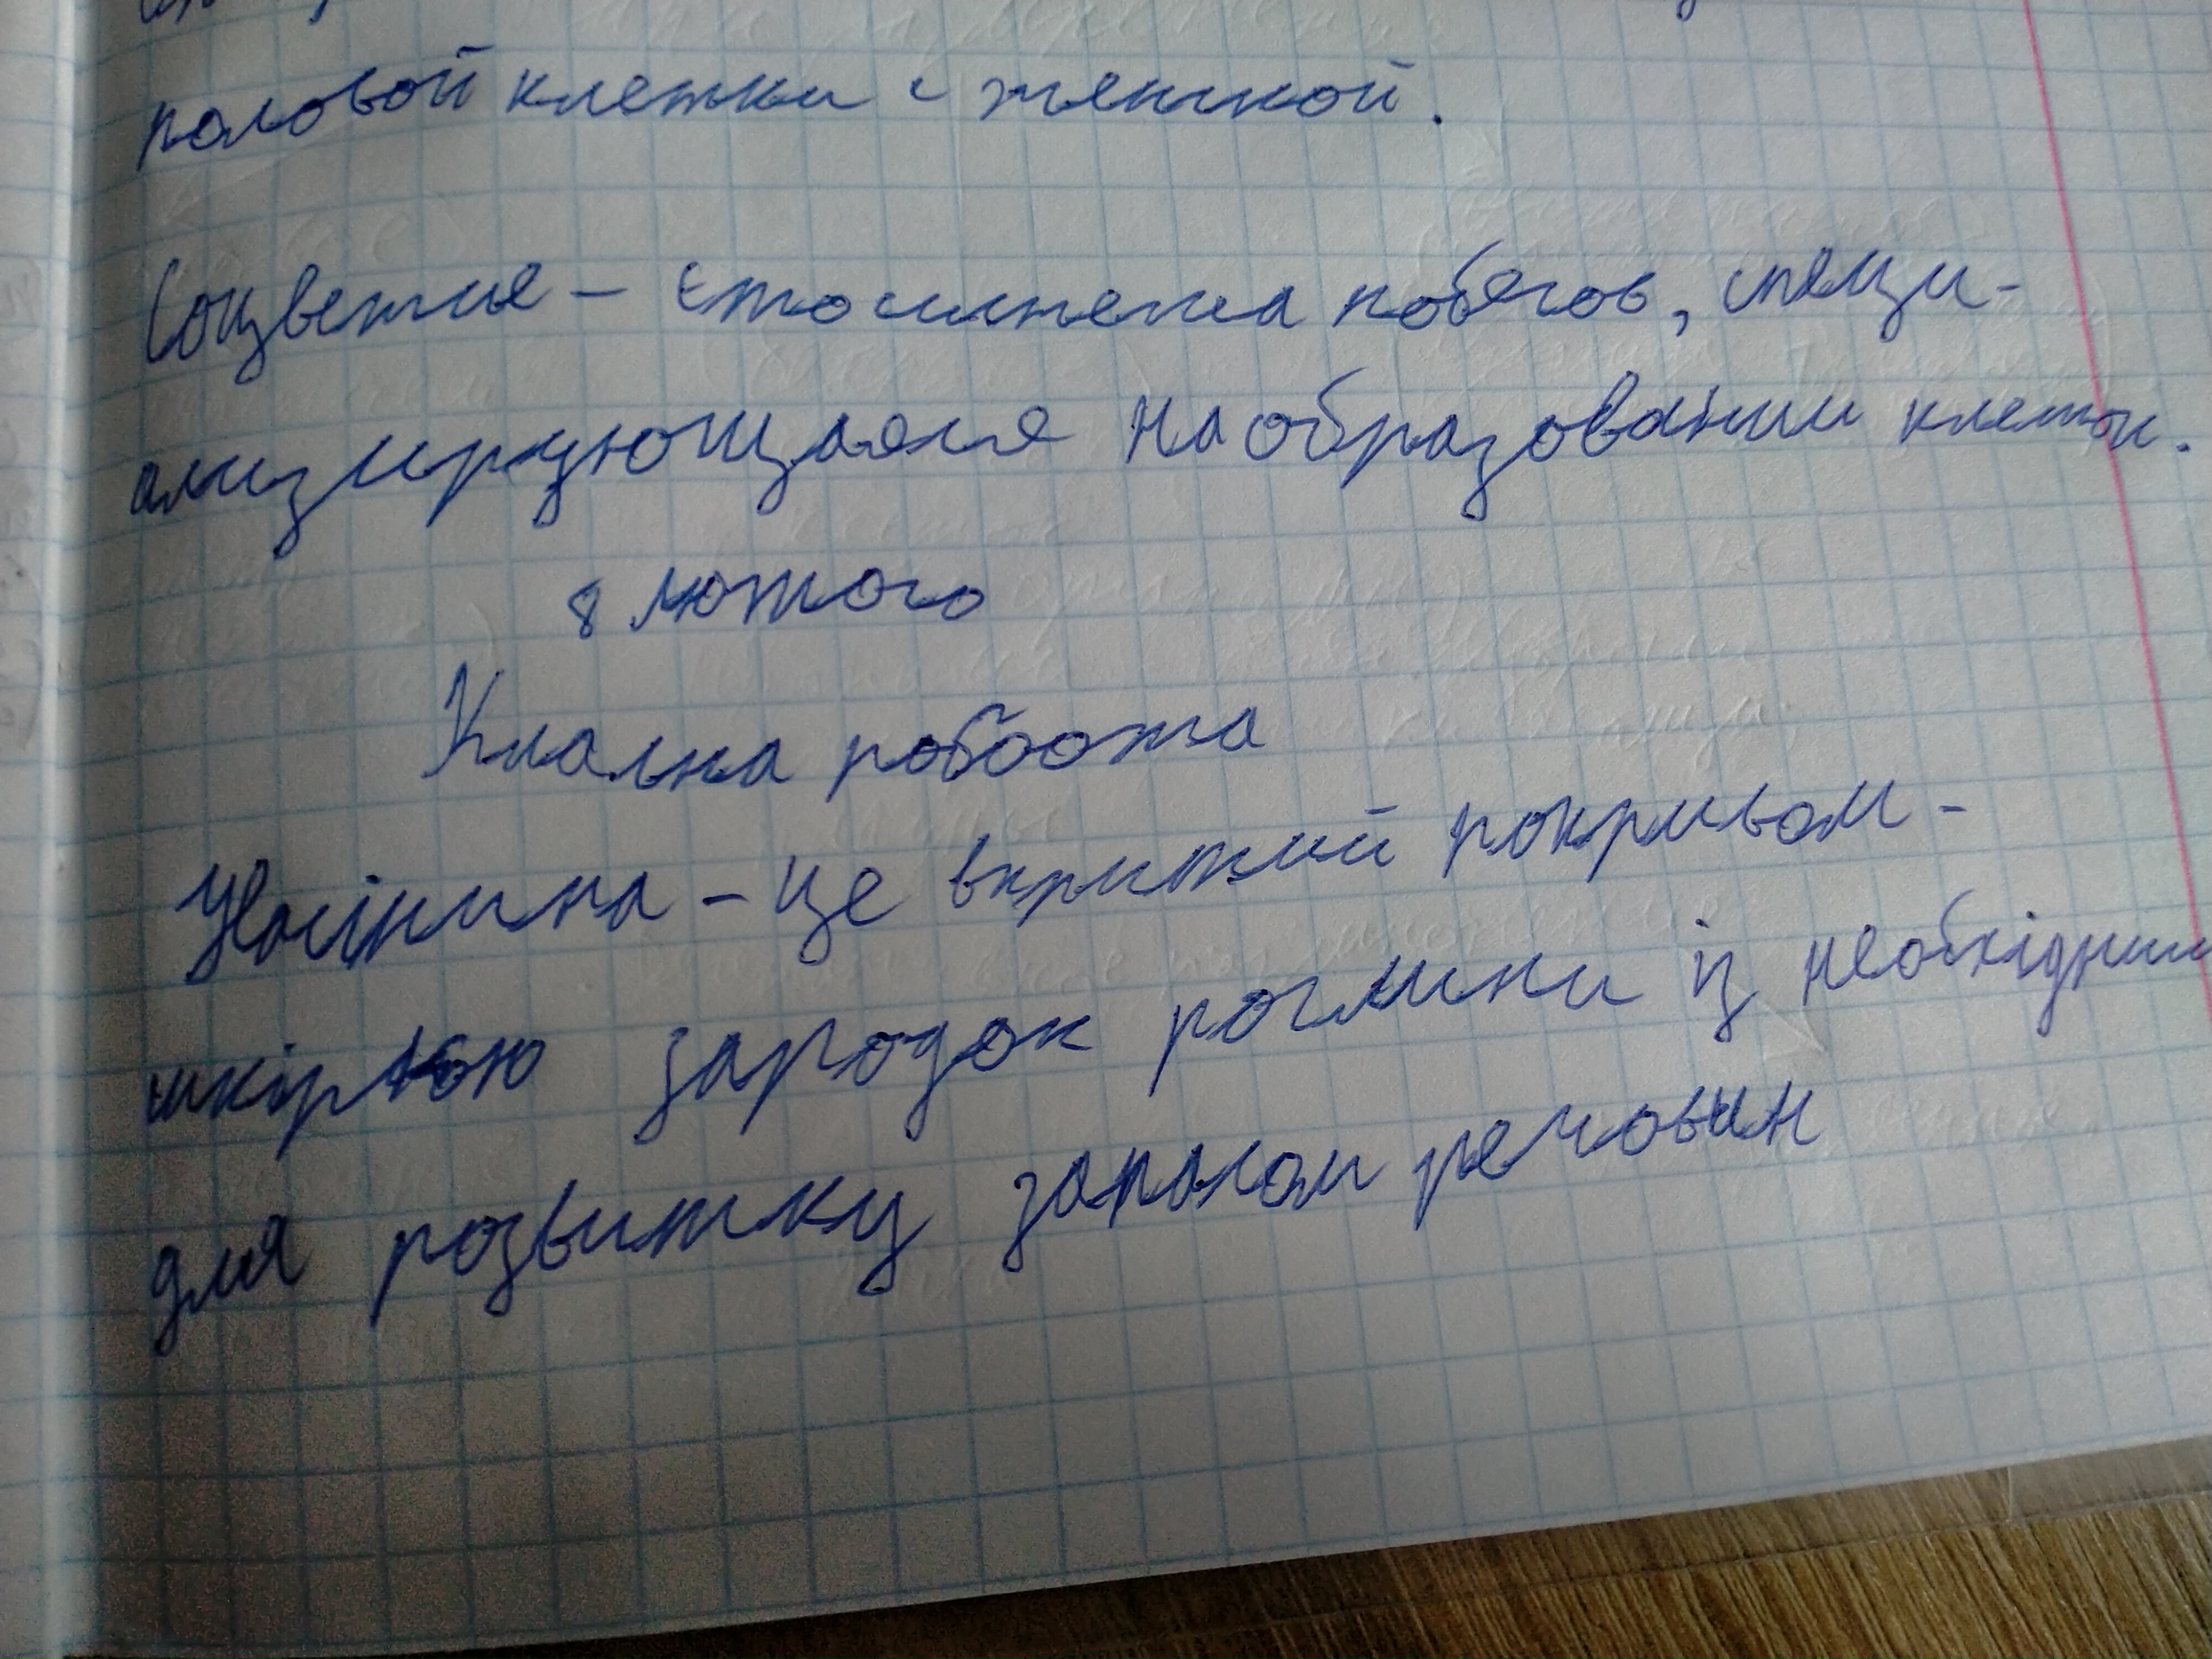 половой клетки с женской.
Соцветие – єто система побегов, специ-
ализирующаяся на образовании клеток.
8 лютого
Класна робоота
Насінина – це вкритий покривом -
шкіркою зародок рослини із необхідним
для розвитку запасом речовин